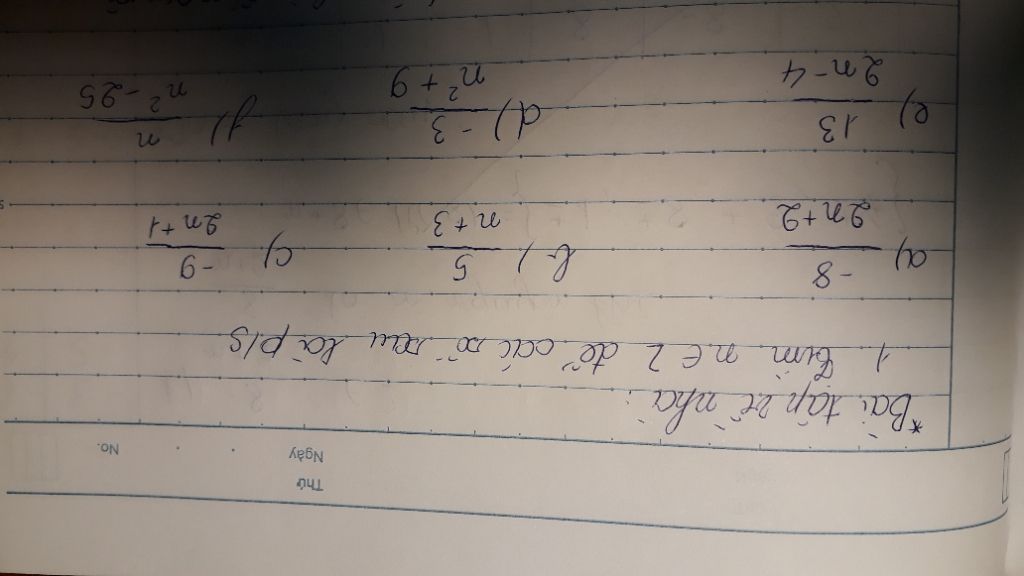 Thứ
Ngày No.
*Bài tập về nhà:
1 Tìm n ∈ Z để các số sau là p/s
a) -8/2n+2 b) 5/n+3 c) -9/2n+1
e) 13/2n-4 d) -3/n²+9 g) n/n²-25